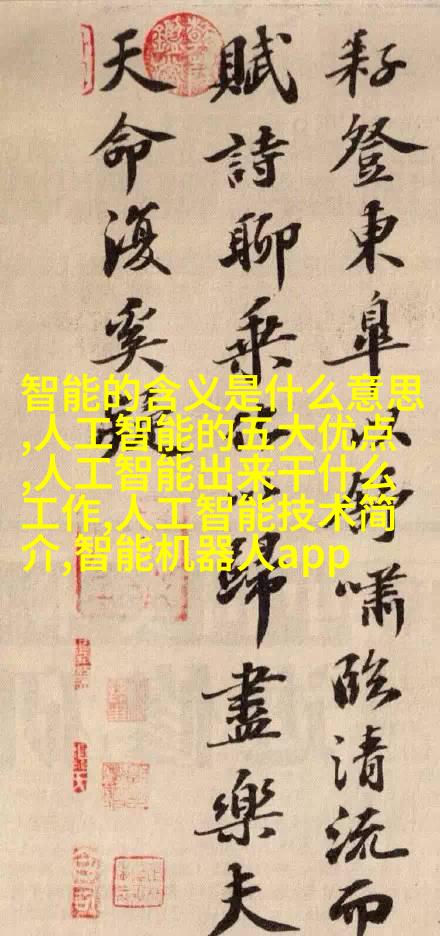 耔登東皐以舒嘯臨清流而
賦詩聊乘化以歸盡樂夫
天命復奚疑
智能的含义是什么意思
,人工智能的五大优点
,人工智能出来干什么
工作,人工智能技术简
介,智能机器人app